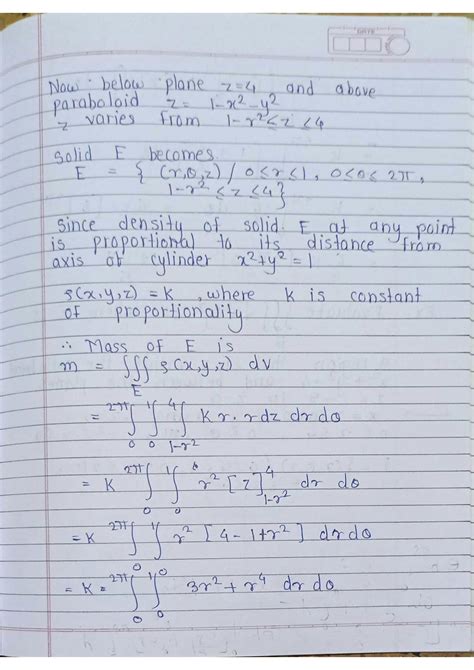 DATE
Now below plane z=4 and above
paraboloid z = 1-x²-y²
z varies from 1-r²≤z ≤4
Solid E becomes
E = { (r,θ,z) / 0≤r≤1, 0≤θ≤2π,
1-r² ≤z ≤4}
Since density of solid E at any point
is proportional to its distance from
axis of cylinder x²+y²=1
ρ(x,y,z) = K , where K is constant
of proportionality
∴ Mass of E is
m = ∭_E ρ(x,y,z) dv
= ∫_0^2π ∫_0^1 ∫_1-r²^4 Kr·rdz dr dθ
= K ∫_0^2π ∫_0^1 r² [z]_1-r²^4 dr dθ
= K ∫_0^2π ∫_0^1 r² [4-1+r²] dr dθ
= K ∫_0^2π ∫_0^1 3r²+r⁴ dr dθ